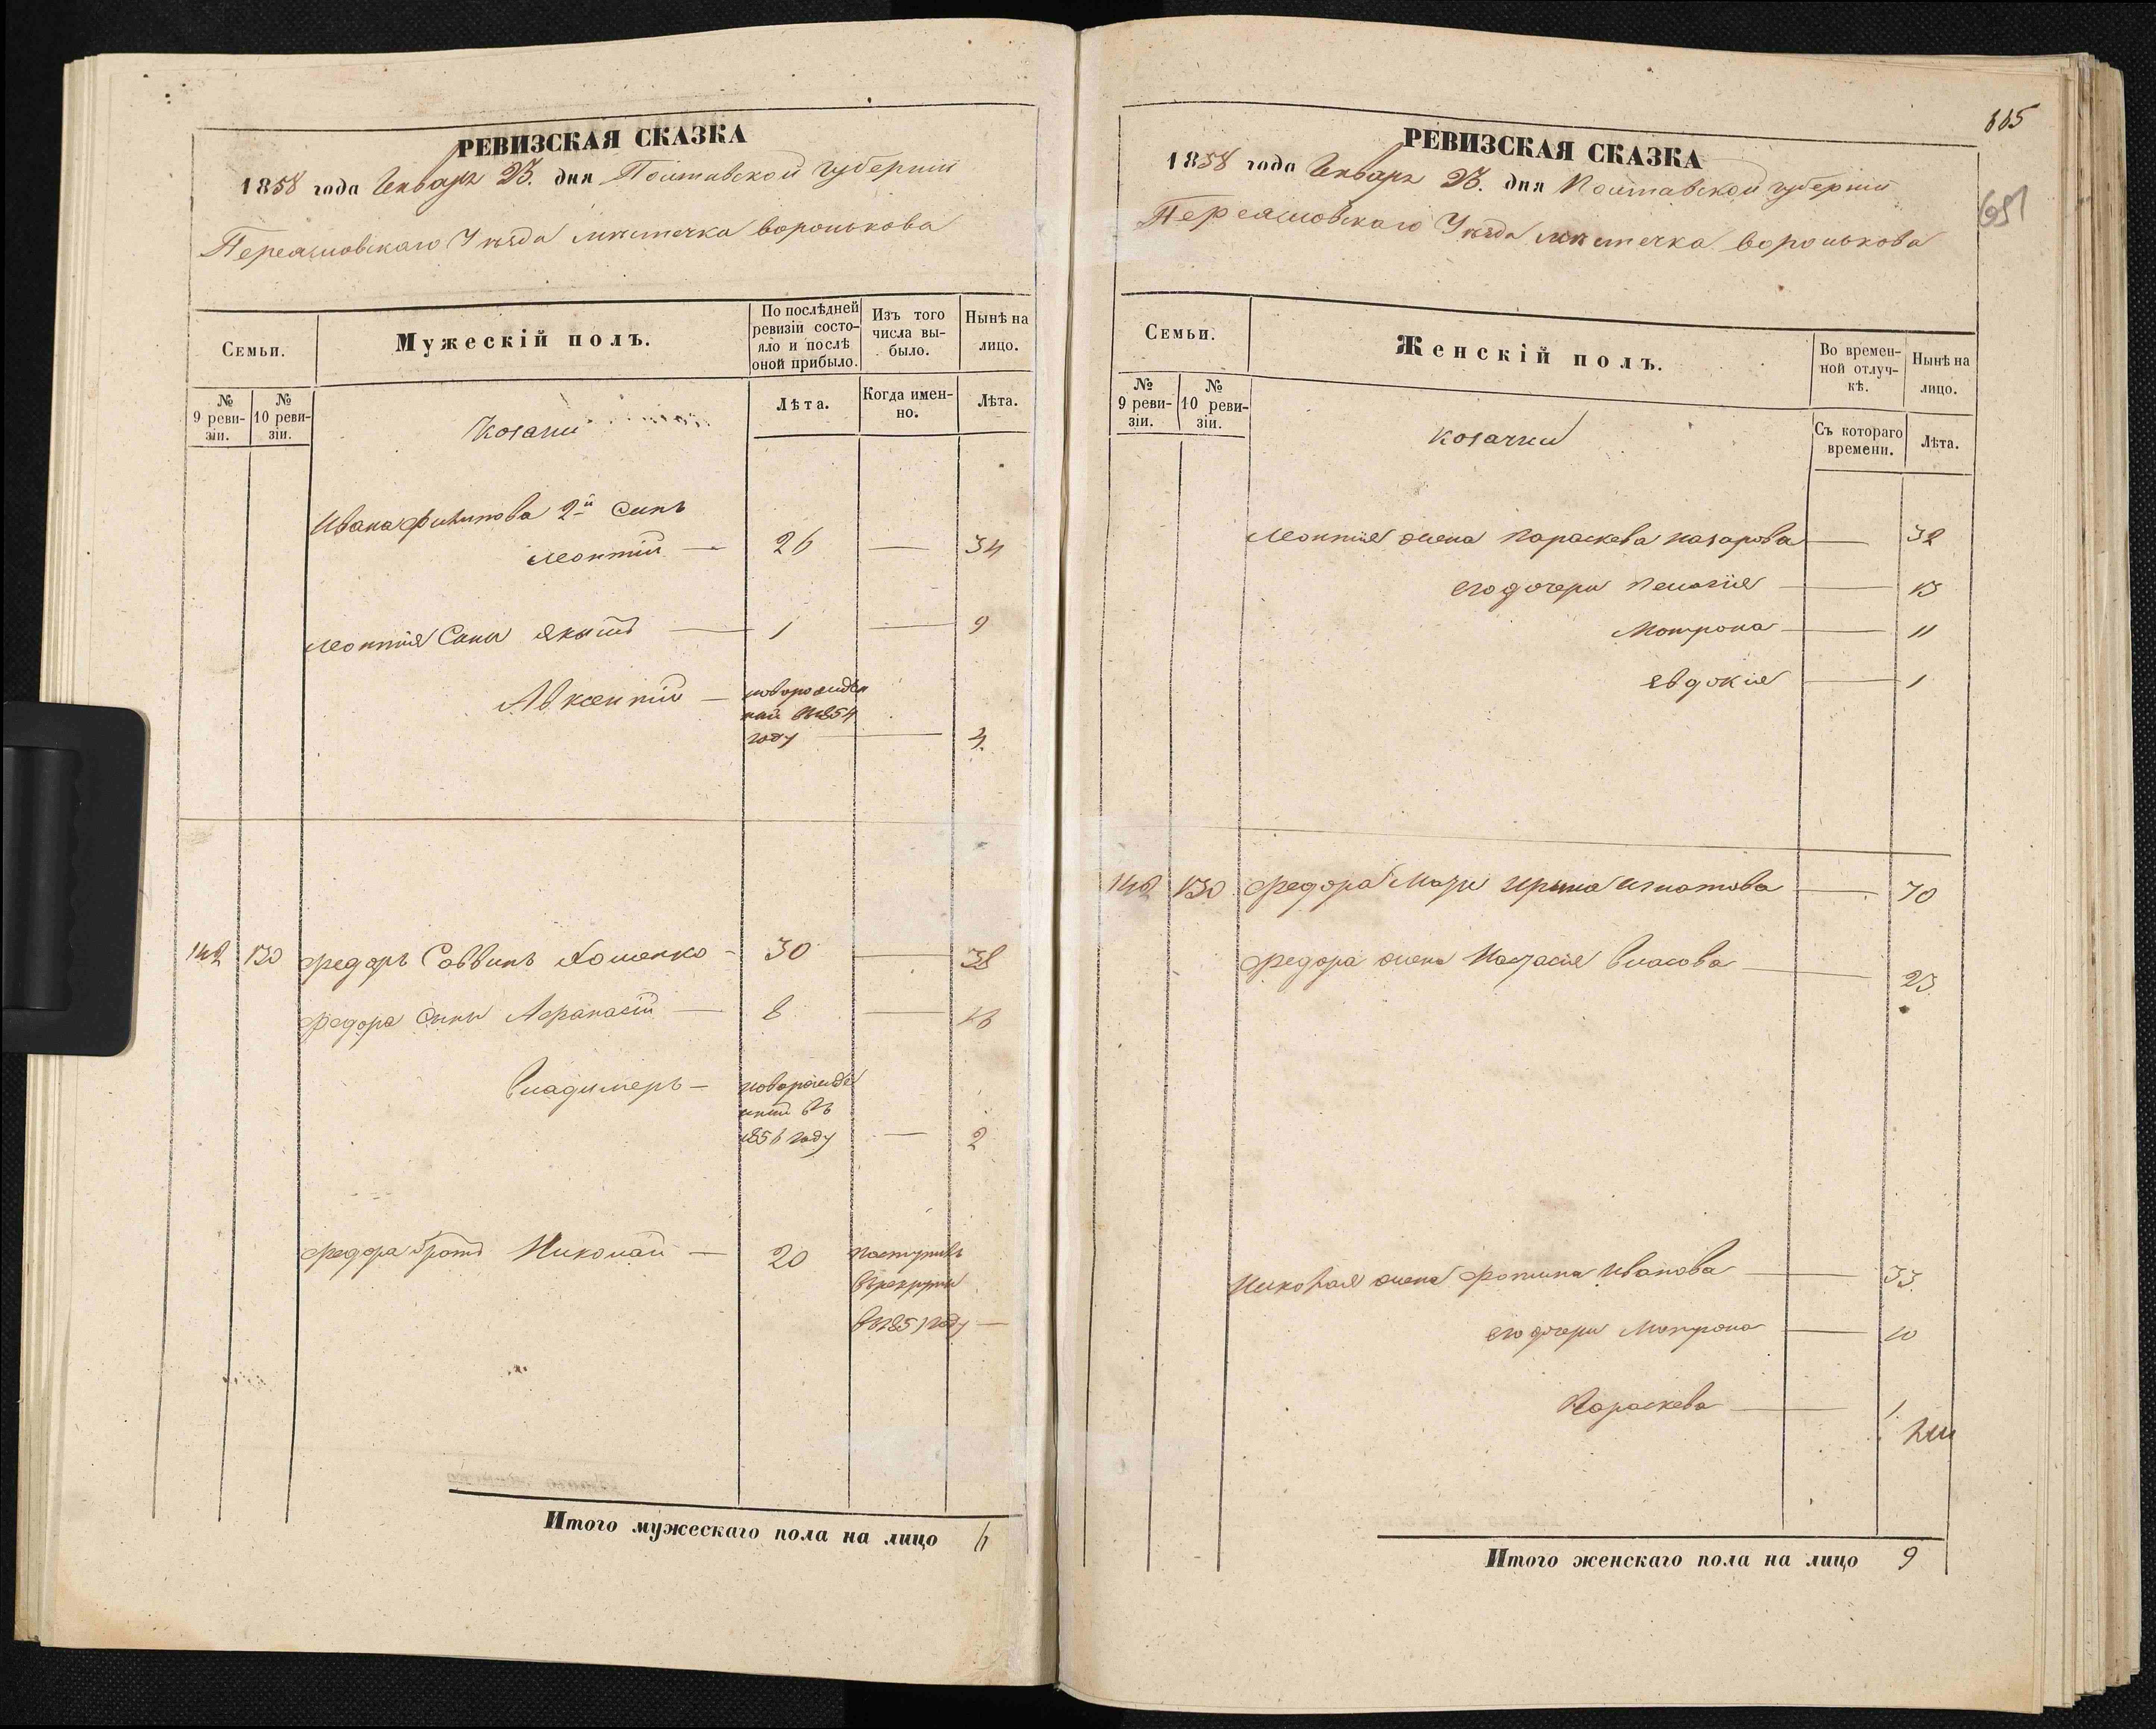 РЕВИЗСКАЯ СКАЗКА
1858 года Генваря 23. дня Полтавской губерніи
Переяславскаго Уѣзда мѣстечка Воронькова
Семьи.
Мужескій полъ.
По послѣдней ревизіи состояло и послѣ оной прибыло.
Изъ того числа выбыло.
Нынѣ на лицо.
№ 9 ревизіи.
№ 10 ревизіи.
Козаки
Лѣта.
Когда именно.
Лѣта.
Ивана Филипова 2й Сынъ
Леонтій — 26 — 34
Леонтія Сины Якимъ — 1 — 9
Авксентій — новорожден
ный въ 1854
году — 4.
142 130 Федоръ Саввинъ Хоменко - 30 — 38
Федора Сины Афанасій — 8 — 16
Владимеръ — новорожде
нный въ
1856 году — 2
Федора братъ Николай — 20 поступилъ
въ рекруты
въ 1851 году —
Итого мужескаго пола на лицо 6
665
РЕВИЗСКАЯ СКАЗКА
1858 года Генваря 23. дня Полтавской губерніи
Переяславскаго Уѣзда мѣстечка Воронькова
Семьи.
Женскій полъ.
Во временной отлучкѣ.
Нынѣ на лицо.
№ 9 ревизіи.
№ 10 ревизіи.
Козачки
Съ котораго времени.
Лѣта.
Леонтія жена Параскева Назарова — 32
его дочери Пелагія — 13
Мотрона — 11
Евдокія — 1
142 130 Федора Мати Ирина Игнатова — 70
Федора жена Настасія Власова — 23
Николая жена Фотина Иванова — 33
его дочери Мотрона — 10
Параскева — 1
Итого женскаго пола на лицо 9